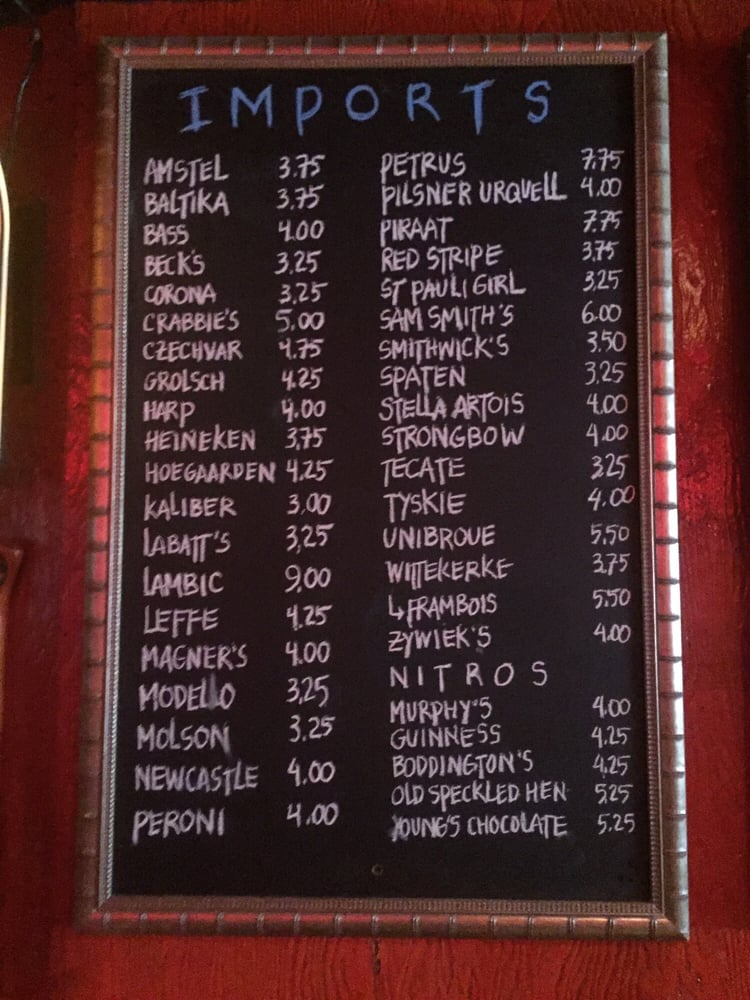 IMPORTS
AMSTEL 3.75
BALTIKA 3.75
BASS 4.00
BECK'S 3.25
CORONA 3.25
CRABBIE'S 5.00
CZECHVAR 4.75
GROLSCH 4.25
HARP 4.00
HEINEKEN 3.75
HOEGAARDEN 4.25
KALIBER 3.00
LABATT'S 3.25
LAMBIC 9.00
LEFFE 4.25
MAGNER'S 4.00
MODELLO 3.25
MOLSON 3.25
NEWCASTLE 4.00
PERONI 4.00
PETRUS 7.75
PILSNER URQUELL 4.00
PIRAAT 7.75
RED STRIPE 3.75
ST PAULI GIRL 3.25
SAM SMITH'S 6.00
SMITHWICK'S 3.50
SPATEN 3.25
STELLA ARTOIS 4.00
STRONGBOW 4.00
TECATE 3.25
TYSKIE 4.00
UNIBROUE 5.50
WITTEKERKE 3.75
↳ FRAMBOIS 5.50
ZYWIEK'S 4.00
NITROS
MURPHY'S 4.00
GUINNESS 4.25
BODDINGTON'S 4.25
OLD SPECKLED HEN 5.25
YOUNG'S CHOCOLATE 5.25